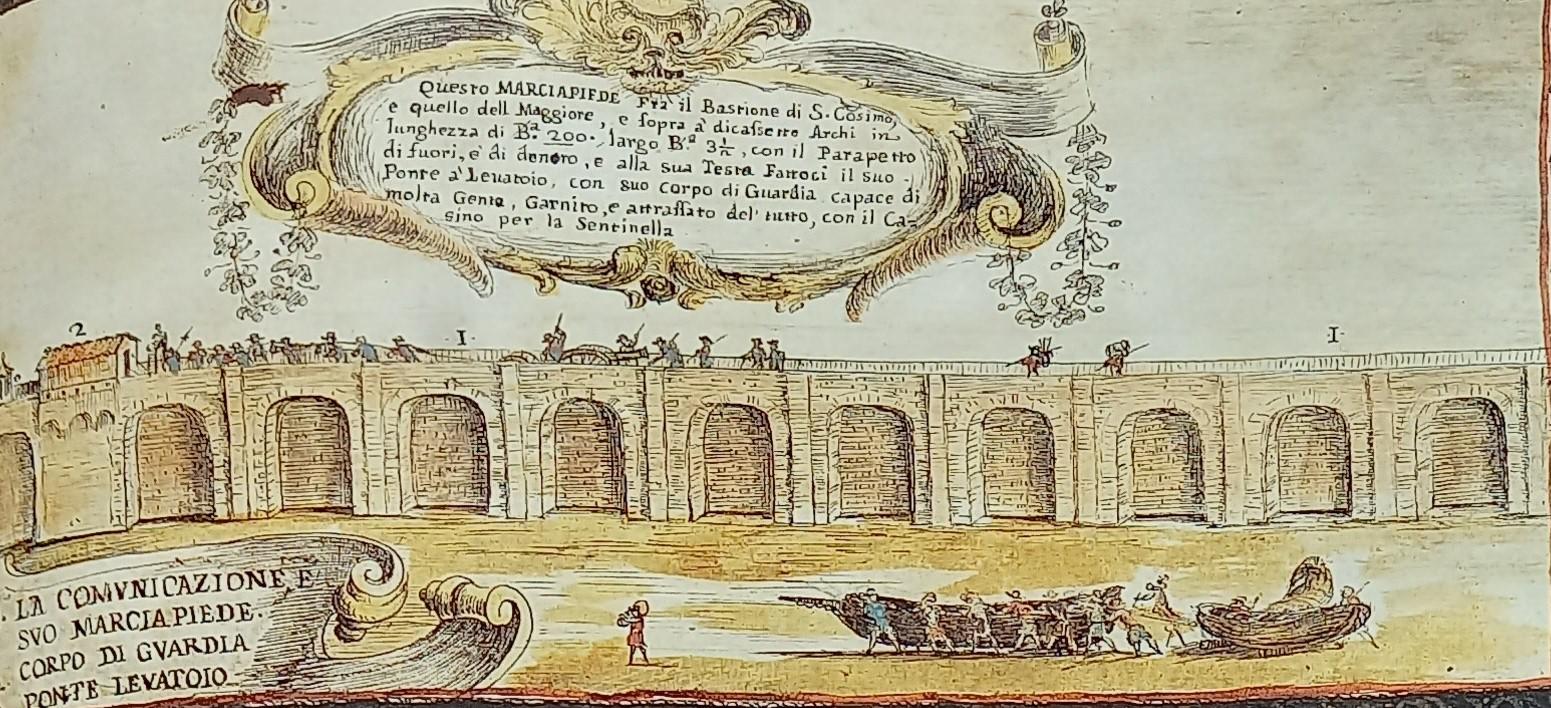 Questo MARCIAPIEDE Fra il Bastione di S. Cosimo,
e quello dell Maggiore, e sopra à dicassette Archi in
lunghezza di B.ª 200. largo B.ª 3½, con il Parapetto
di fuori, e di dentro, e alla sua Testa Fattoci il suo
Ponte à Leuatoio, con suo Corpo di Guardia capace di
molta Gente, Garnito, e attrassato del' tutto, con il Ca-
sino per la Sentinella
2
1.
1.
LA COMVNICAZIONE E
SVO MARCIAPIEDE.
CORPO DI GVARDIA
PONTE LEVATOIO